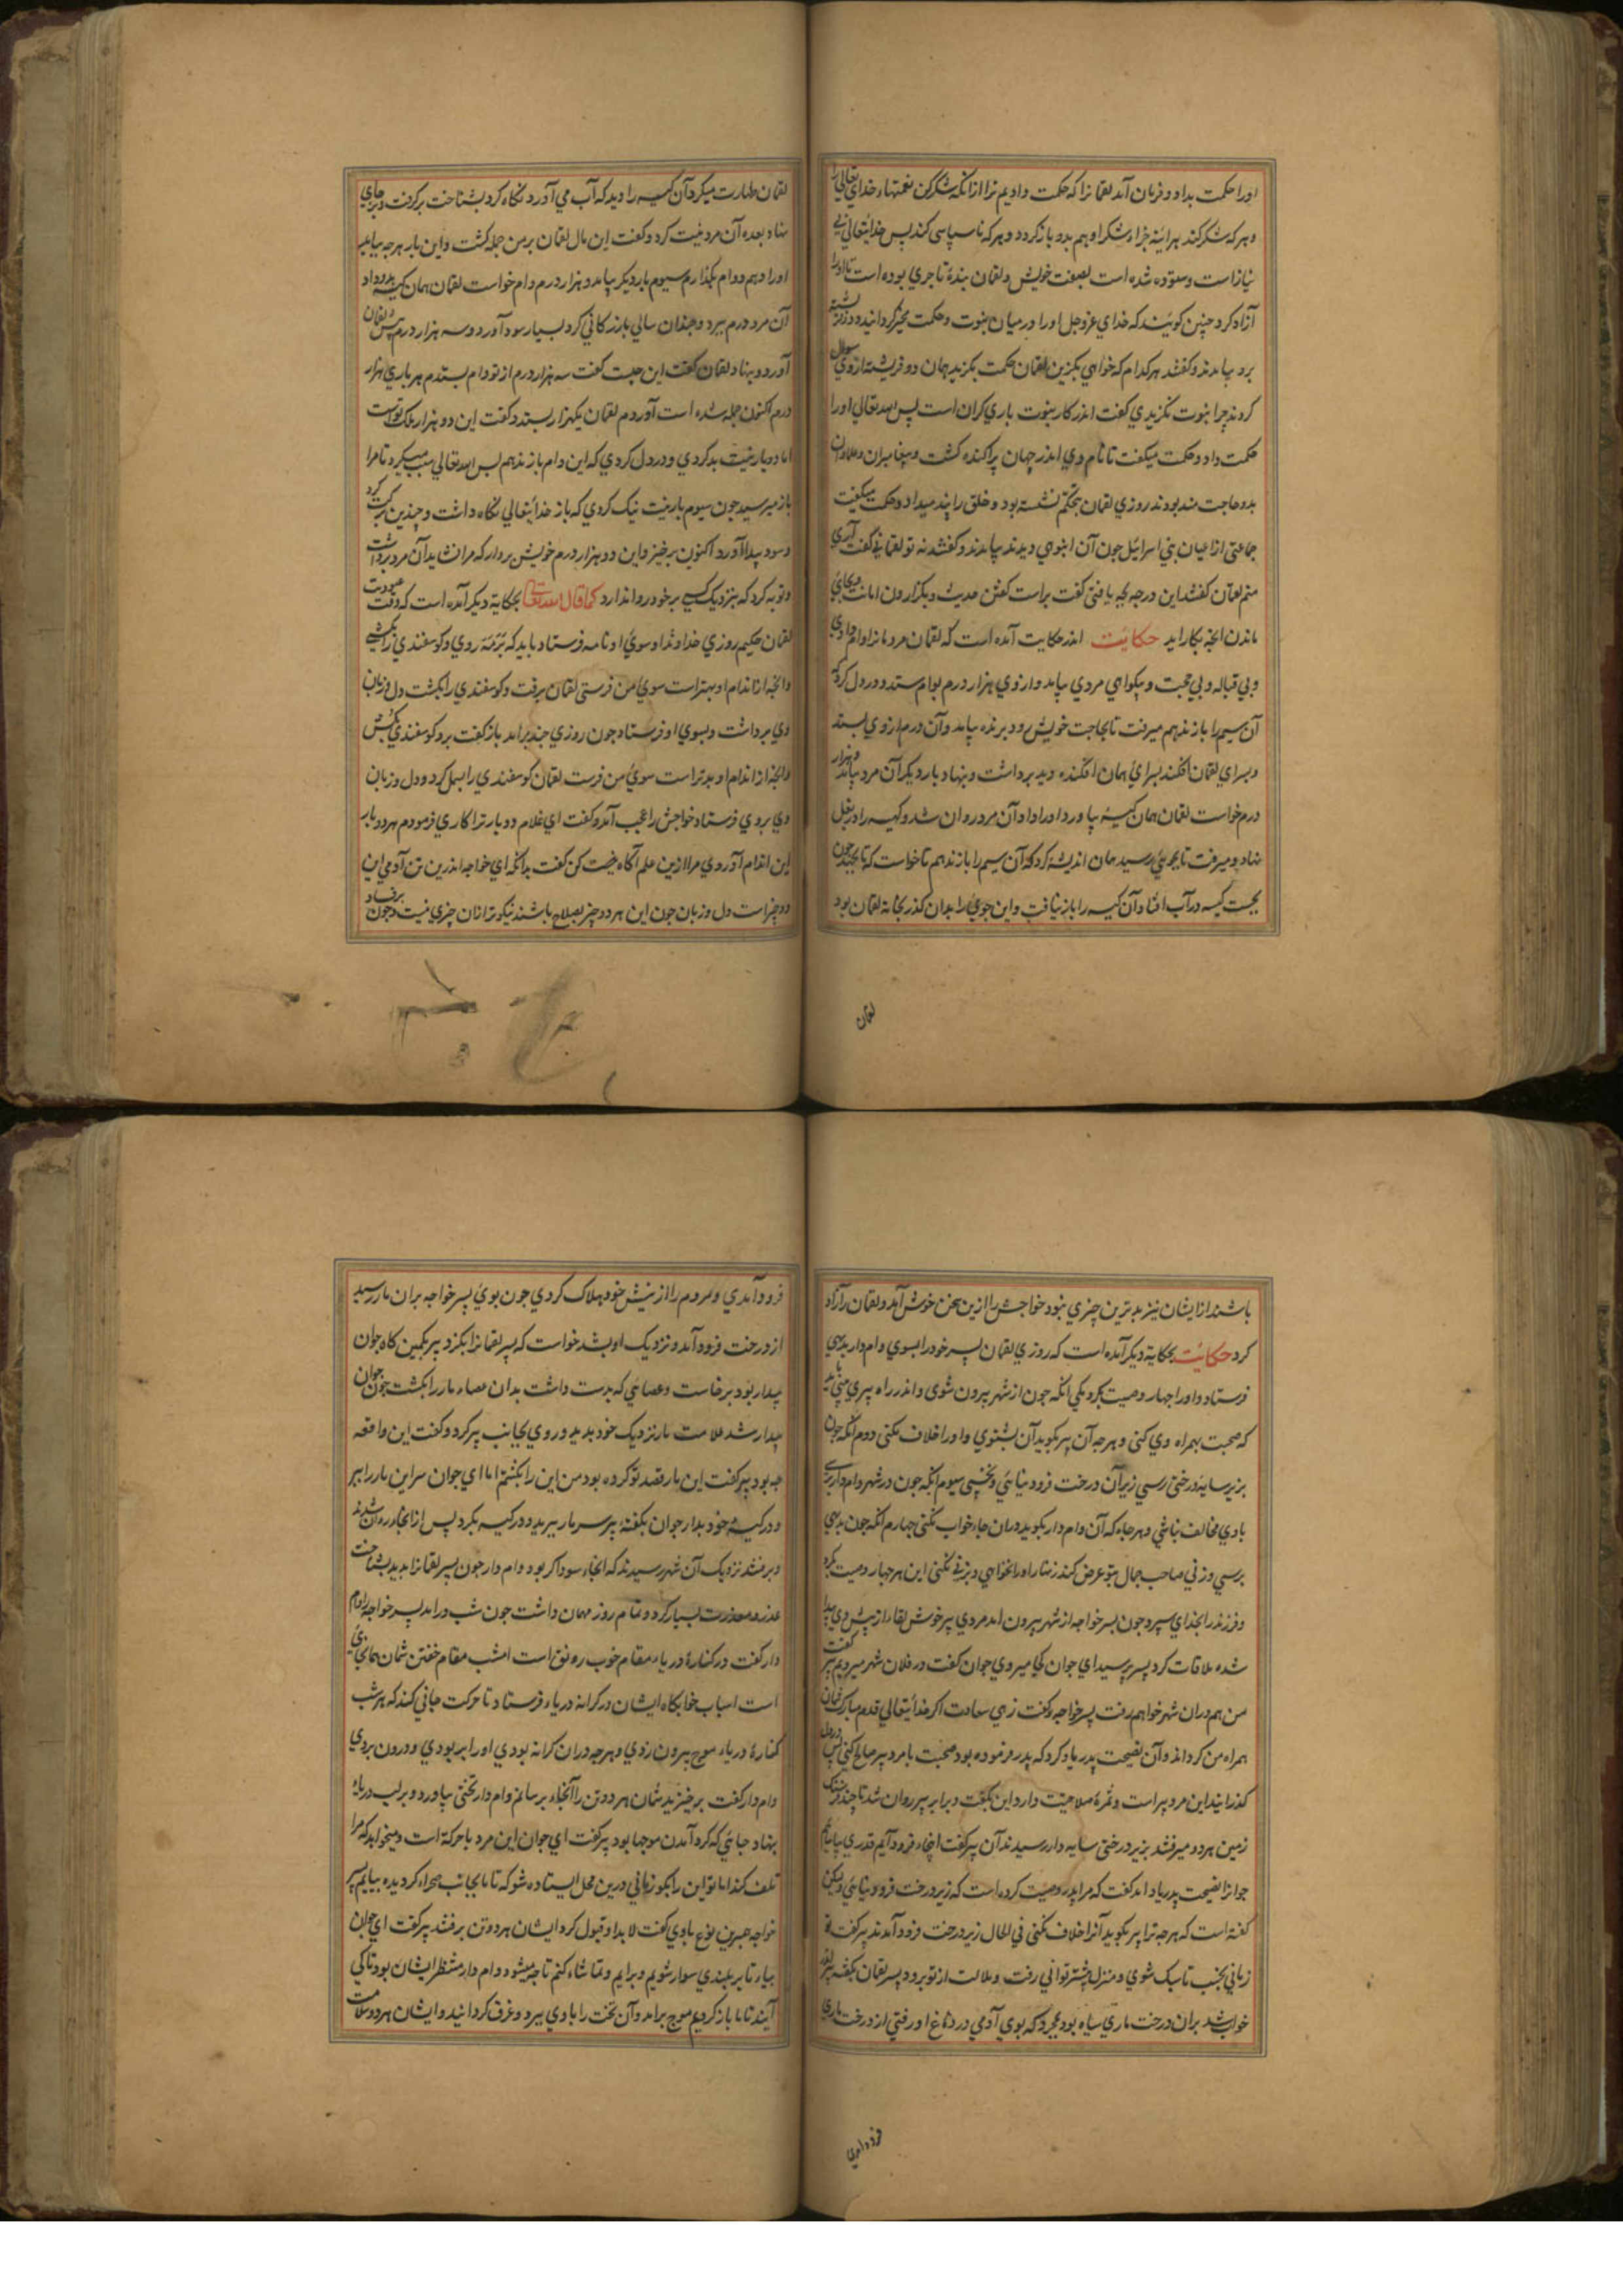 اورا حکمت بداد و فرمان آمد لقمانرا که حکمت دادیم ترا از انکه شکر کن نعمتهاء خدای تعالی را
و هر که شکر کند هرآینه جزاء شکر او هم بدو باز کردد و هر که ناسپاسی کند پس خدایتعالی بی
نیاز است و ستوده شده است بصفت خویش و لقمان بندهٔ تاجری بوده است تا اورا
آزاد کرد چنین کویند که خدای عزوجل اورا در میان نبوت و حکمت مخیر کردانید و دو فرشته
برو بیامدند و کفتند هر کدام که خواهی بکزین لقمان حکمت بکزید همان دو فریشته از وی سوال
کردند چرا نبوت نکزیدی کفت اندر کار نبوت باری کران است پس الله تعالی اورا
حکمت داد و حکمت میکفت تا نام وی اندر جهان پراکنده کشت و پیغامبران و علما بدان
بدو حاجت مند بودند روزی لقمان بتحکم نشسته بود و خلق را پند میداد و حکمت میکفت
جماعتی از اعیان بنی اسرائیل جون آن انبوهی دیدند بیامدند و کفتند نه تو لقمانی کفت آری
منم لقمان کفتند این درجه بجه یافتی کفت براست کفتن حدیث و بکزاردن امانت و بجای
ماندن انچه بکار اید حکایت اندر حکایت آمده است که لقمان مردمانرا وام دادی
و بی قباله و بی حجت و بی کواهی مردی بیامد و از وی هزار درم بوام ستد و در دل کرد که
آن سیم را باز ندهم میرفت تا بحاجت خویش دزد برنده بیامد و آن درم از وی بستد
و بسرای لقمان افکند بسرایٔ همان افکنده دید برداشت و بنهاد بار دیکر آن مرد بیامد و هزار
درم خواست لقمان همان کیسهٔ بیاورد اورا داد آن مرد روان شد و کیسه را در بغل
نهاد و میرفت تا بجویی رسید همان اندیشه کرد که آن سیم را باز ندهم تا خواست که تا بجهد جون
بجست کیسه در آب افتاد آن کیسه را باز نیافت و این جویٔ را بدان کذر بخانهٔ لقمان بود
لقمان
لقمان طهارت میکرد آن کیسه را دید که آب می آورد نکاه کرد بشناخت برکرفت و بر جای
بنهاد بعده آن مرد نیت کرد و کفت این مال لقمان بر من جمله کشت و این بار هرجه بیابم
اورا دهم و وام بکذارم سیوم بار دیکر بیامد و هزار درم وام خواست لقمان همان کیسه بدو داد
آن مرد درم ببرد و جندان سالی بازرکانی کرد بسیار سود آورد و سه هزار درم پیش لقمان
آورد و بنهاد لقمان کفت این چیست کفت سه هزار درم از تو وام بستدم هر باری هزار
درم اکنون جمله شده است آوردم لقمان یکهزار بستد و کفت این دو هزار ملک توست
اما دوبار نیت بد کردی و در دل کردی که این وام باز ندهم پس الله تعالی سبب میکرد تا مرا
باز میرسید جون سیوم بار نیت نیک کردی که باز خدایتعالی نکاه داشت و چندین برکت کرد
و سود پیدا آورد اکنون برخیز و این دو هزار درم خویش بردار که مرا نشاید آن مرد برداشت
و توبه کرد که بنزدیک کسی بر خود روا ندارد کما قال الله تعالی بحکایة دیکر آمده است که وقت عبودیت
لقمان حکیم روزی خداوند او سویٔ او نامه فرستاد باید که برمه روی و کوسفندی را بکشی
و انچه از اندام او بهتر است سویٔ من فرستی لقمان برفت و کوسفندی را بکشت دل و زبان
وی برداشت و بسوی او فرستاد جون روزی جند برامد باز کفت برو کوسفندی بکش
و انچه از اندام او بدتر است سویٔ من فرست لقمان کوسفندی را بسمل کرد و دل و زبان
وی بروی فرستاد خواجش را عجب آمد و کفت ای غلام دوبار ترا کاری فرمودم هر دو بار
این اندام آوردی مرا ازین علم آکاه کن کفت بدانکه ای خواجه اندرین تن آدمی این
دو چیز است دل و زبان جون این هر دو چیز بصلاح باشند نیکوتر ازان چیزی نیست و جون بر فساد
باشند از ایشان نیز بدترین چیزی نبود خواجش را ازین سخن خوش آمد و لقمان را آزاد
کرد حکایت بحکایة دیکر آمده است که روزی لقمان پسر خود را بسوی وام دار بدیهی
فرستاد و اورا چهار وصیت بکرد یکی انکه جون از شهر بیرون شوی و اندر راه پیری بینی باید
که صحبت بهمراه وی کنی و هرجه آن پیر بکوید آن بشنوی و اورا خلاف نکنی دوم انکه جون
بزیر سایهٔ درختی رسی زیر آن درخت فرود نیائی و نخسپی سیوم انکه جون در شهر وام دار رسی
باوی مخالف نباشی و هر جاء که آن وام دار بکوید دران جاء خواب نکنی چهارم انکه جون بدیهی
برسی و زنی صاحب جمال بتو عرض کنند زنهار اورا نخواهی و بزنی نکنی این هر چهار وصیت بکرد
و فرزند را بخدای سپرد جون پسر خواجه از شهر بیرون امد مردی پیر خوش لقاء از پیش وی پیدا
شده ملاقات کرد پیر پرسید ای جوان کجا میروی جوان کفت در فلان شهر میروم پیر کفت
من هم دران شهر خواهم رفت پسر خواجه کفت زهی سعادت اکر خدایتعالی قدم مبارک شمان
همراه من کرداند و آن نصیحت پدر یاد کرد که پدر فرموده بود صحبت با مرد پیر صالح کنی پس در دل
کذرانید این مرد پیر است و ثمرهٔ صلاحیت دارد این بکفت و برابر پیر روان شد تا چند فرسنک
زمین هر دو میرفتند بزیر درختی سایه دار رسیدند آن پیر کفت اینجاء فرود آیم قدری بیاسایم
جوانرا نصیحت پدر یاد امد کفت که مرا پدر وصیت کرده است که زیر درخت فرود نیائی و لیکن
کفته است که هرجه ترا پیر بکوید آنرا خلاف نکنی فی الحال زیر درخت فرود آمدند پیر کفت تو
زمانی بخسپ تا سبک شوی و منزل پیشتر توانی رفت و ملالت از تو برود پسر لقمان بکفته پیر
خواب شد بران درخت ماری سیاه بود مجرد که بوی آدمی در دماغ او رفتی از درخت ماری
فرود آمدی
فرود آمدی و مردم را از نیش خود هلاک کردی جون بویٔ پسر خواجه بران مار رسید
از درخت فرود آمد و نزدیک او بشد خواست که پسر لقمانرا بکزد پیر بکمین کاه جوان
بیدار بود برخاست و عصائی که بدست داشت بدان عصاء مار را بکشت جون جوان
بیدار شد علامت مار نزدیک خود بدید و روی بجانب پیر کرد و کفت این واقعه
چه بود پیر کفت این مار قصد تو کرده بود من این را بکشتم اما ای جوان سر این مار را ببر
و در کیسهٔ خود بدار جوان بکفتهٔ پیر سر مار ببرید و در کیسه بکرد پس از انجاء روان شدند
و برفتند نزدیک آن شهر رسیدند که انجاء سوداکر بود وام دار جون پسر لقمانرا بدید بشناخت
عذر و معذرت بسیار کرد و تمام روز مهمان داشت جون شب درامد پسر خواجه را وام
دار کفت در کنارهٔ دریاء مقام خوب رونق است امشب مقام خفتن شمان همانجای
است اسباب خوابکاه ایشان در کرانه دریاء فرستاد تا حرکت جانی کند که هر شب
کنارهٔ دریاء موج بیرون زدی و هرجه دران کرانه بودی اورا ببر بودی و درون بردی
وام دار کفت برخیزید شمان هر دو تن را آنجاء برسانم وام دار تختی بیاورد و بر لب دریاء
بنهاد جائی که کرد آمدن موجها بود پیر کفت ای جوان این مرد باحرکة است و میخواهد که مرا
تلف کند اما تو این را بکو زمانی درین محل ایستاده شو که تا ما بجانب صحراء کردیده بیایم پسر
خواجه همبرین نوع باوی کفت لابد او قبول کرد ایشان هر دو تن برفتند پیر کفت ای جوان
بیا تا بر بلندی سوار شویم و برایم و تماشاء کنم تا چه میشود وام دار منتظر ایشان بود تا کی
آیند تا ما باز کردیم موج برامد و آن تخت را باوی ببرد و غرق کردانید و ایشان هر دو سلامت